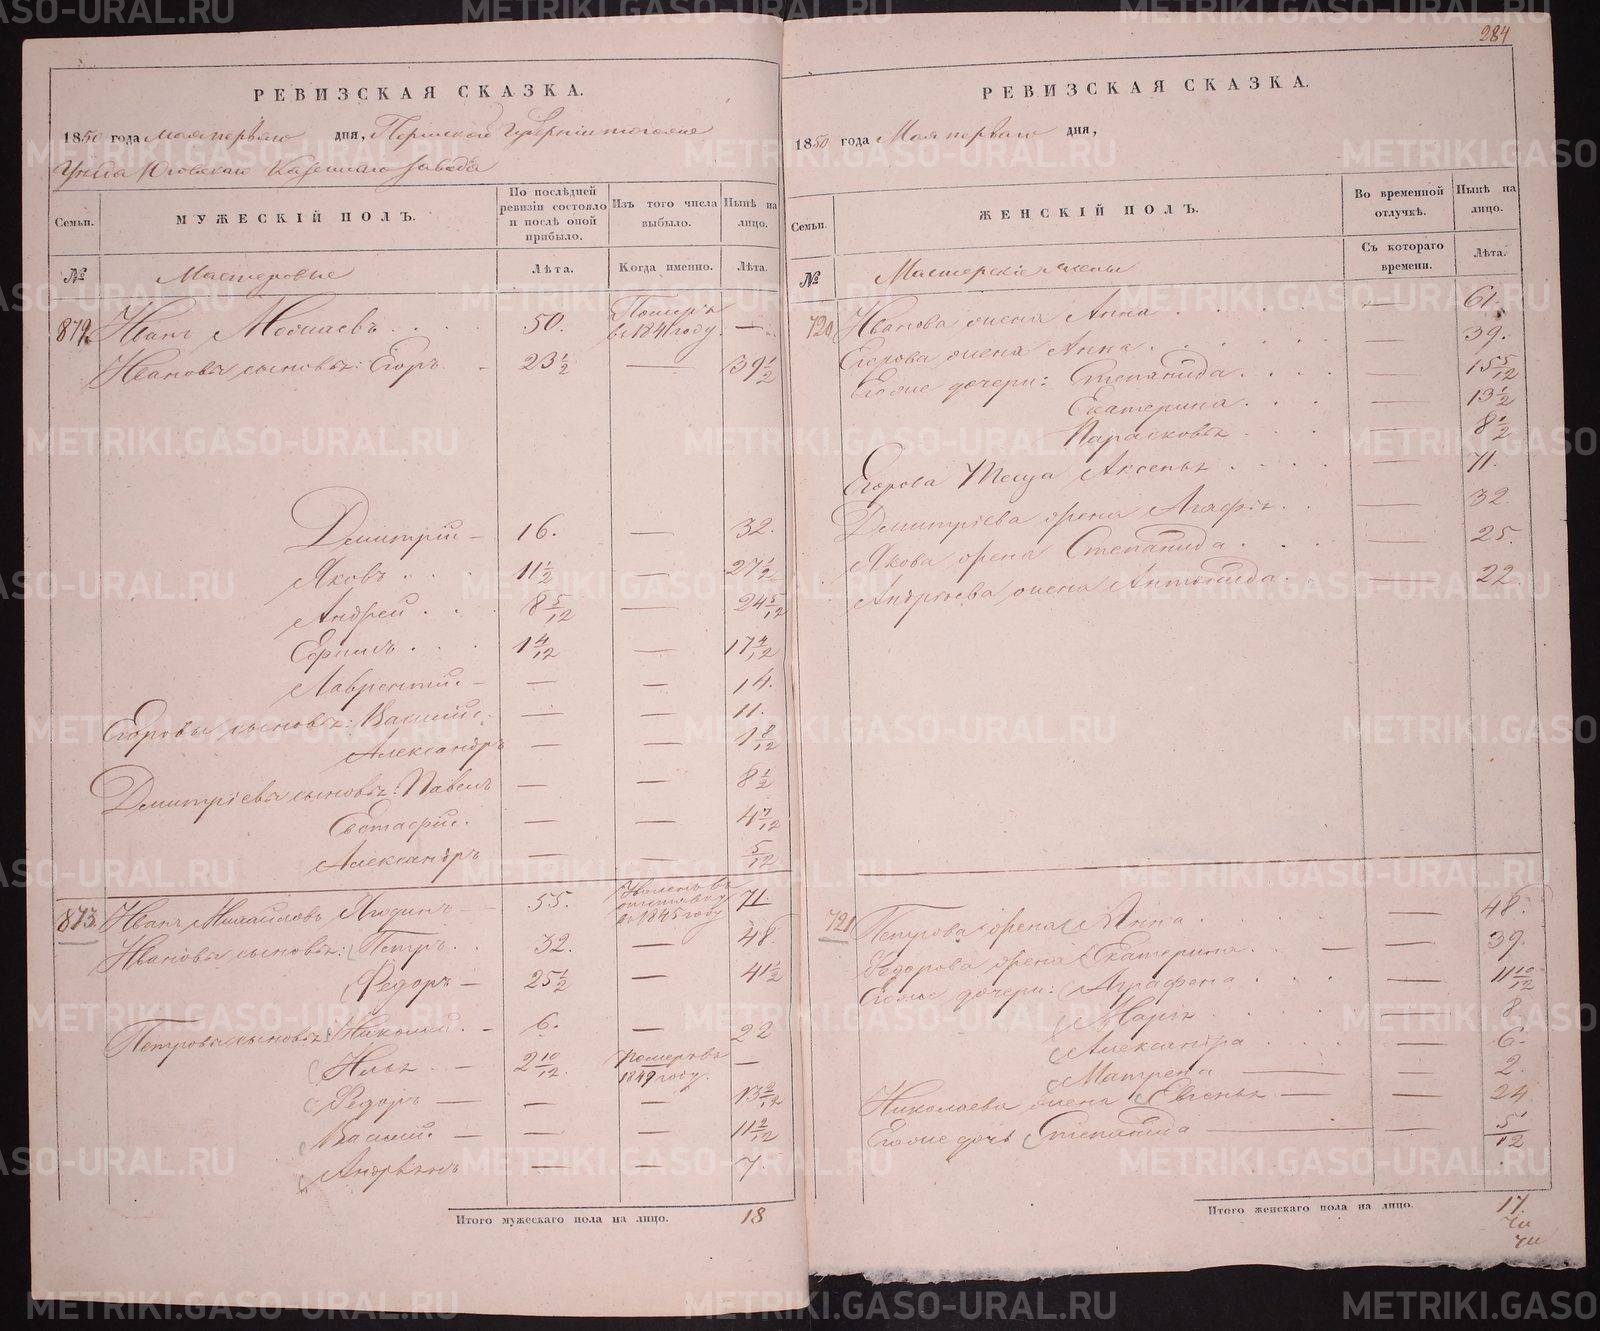 284
РЕВИЗСКАЯ СКАЗКА.
1850 года Мая первого дня, Пермской Губернии тогоже
Уезда Юговскаго Казеннаго завода
Семьи.
МУЖЕСКІЙ ПОЛЪ.
По послѣдней ревизіи состояло и послѣ оной прибыло.
Изъ того числа выбыло.
Нынѣ на лицо.
№ Мастеровые Лѣта. Когда именно. Лѣта.
Иванъ 50. Померъ в 1841 году. —
Ивановы сыновья: Егоръ 23 1/2 — 39 1/2
Дмитрій 16. — 32.
Яковъ 11 1/2 — 27 1/2
Андрей 8 5/12 — 24 5/12
Ефимъ 1 4/12 — 17 4/12
Лаврентій — — 14.
Егоровы сыновья: Василій — — 11.
Александръ — — 1 8/12
Дмитріевы сыновья: Павелъ — — 8 1/2
Евстафій — — 4 7/12
Александръ — — 5/12
873. Иванъ Михайловъ Ягодинъ 55. Уволенъ въ отставку в 1845 году 71.
Ивановы сыновья: Петръ 32. — 48.
Федоръ 25 1/2 — 41 1/2
Петровы сыновья: Николай 6. — 22
Илья 2 10/12 Померъ въ 1849 году. —
Федоръ — — 13 2/12
Василій — — 11 2/12
Андреянъ — — 7.
Итого мужескаго пола на лицо. 18
РЕВИЗСКАЯ СКАЗКА.
1850 года Мая первого дня,
Семьи.
ЖЕНСКІЙ ПОЛЪ.
Во временной отлучкѣ.
Нынѣ на лицо.
Съ котораго времени.
Лѣта.
№ Мастерскіе жены
720 Иванова жена Анна — 61.
Егорова жена Анна — 39.
Егоже дочери: Степанида — 15 5/12
Екатерина — 13 1/2
Парасковья — 8 1/2
Егорова Теща Аксенья — 71.
Дмитріева жена Агафья — 32.
Якова жена Степанида — 25.
Андреева жена Антонида — 22.
721 Петрова жена Анна — 48.
Федорова жена Екатерина — 39.
Егоже дочери: Аграфена — 11 10/12
Марія — 8
Александра — 6.
Матрена — 2.
Николаева жена Евгенья — 24.
Егоже дочь Степанида — 5/12
Итого женскаго пола на лицо. 17.
METRIKI.GASO-URAL.RU